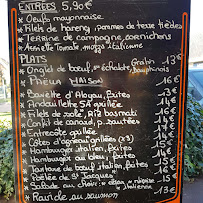 ENTRÉES 5,90€
* Oeufs mayonnaise
* Filets de hareng, pommes de terre tièdes
* Terrine de campagne, cornichons
* Assiette Tomate, mozza italienne
PLATS
* Onglet de boeuf, échalote, Gratin Dauphinois 13€
* Pavé MAISON 16€
* Bavette d'Aloyau, frites 14€
* Andouillette 5A grillée 15€
* Filets de sole, riz basmati
* Confit de canard, p. sautées
* Entrecôte grillée 17€
* Côtes d'agneau grillées (x3) 15€
* Hamburger italien, frites 16€
* Hamburger au bleu, frites 15€
* Tartare de boeuf italien, frites 16€
* Poêlée de St Jacques 16€
* Salade au choix: italienne 15€
* Ravioles au saumon 13€